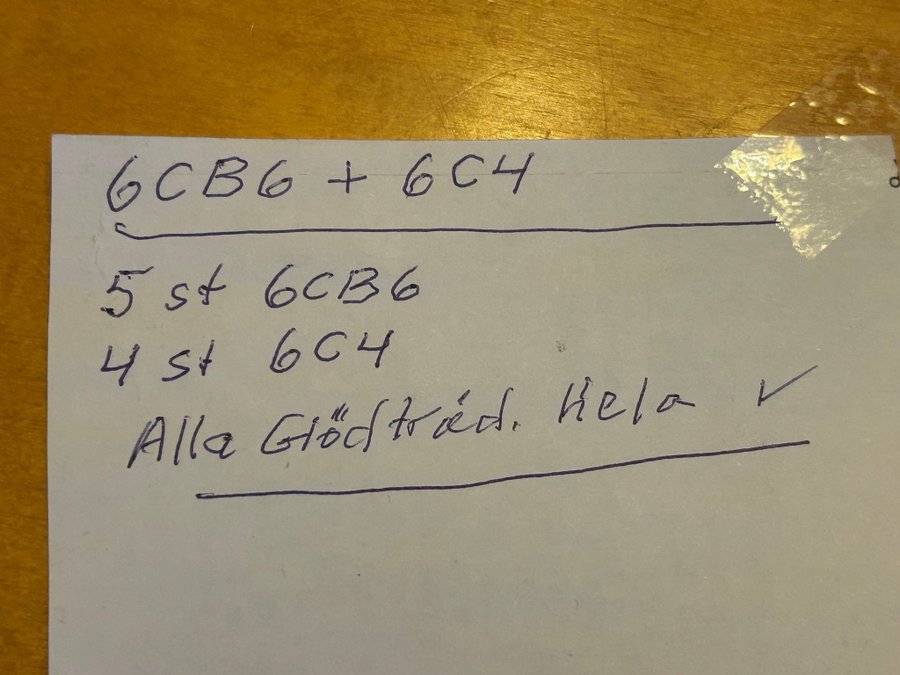 6CB6 + 6C4
5 st 6CB6
4 st 6C4
Alla Glödtråd. Hela ✓